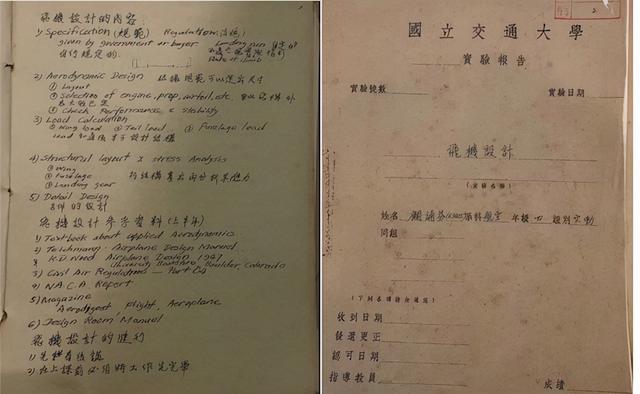 飛機設計的內容:
1) Specification (規範) Regulation (法規)
given by government or buyer. Landing run
自行規定的. Rate of climb
2) Aerodynamic Design 根據規範可以選出尺寸
① Layout
② Selection of engine, prop, airfoil, etc.
③ Check Performance & stability
3) Load Calculation
① Wing load ② Tail load ③ Fuselage load
4) Structural layout & stress Analysis
① Wing
② Fuselage
③ Landing gear
5) Detail Design
各件的設計
飛機設計參考資料 (上半年)
1) Textbook about applied Aerodynamics.
2) Teichmann - Airplane Design Manual
3) K.D. Wood Airplane Design 1947
University Bookstore, Boulder, Colorado
3) Civil Air Regulations — Part 04
4) N.A.C.A. Report
5) Magazine
Aerodigest Flight, Aeroplane
6) Design Room Manual
飛機設計的進行
1)
2) 在上課前必須將工作先完畢
2
國立交通大學
實驗報告
實驗號數 實驗日期
飛機設計
姓名 學科 航空 年級 四 組別 空動
同組
收到日期
發還更正
認可日期
指導教員 成績